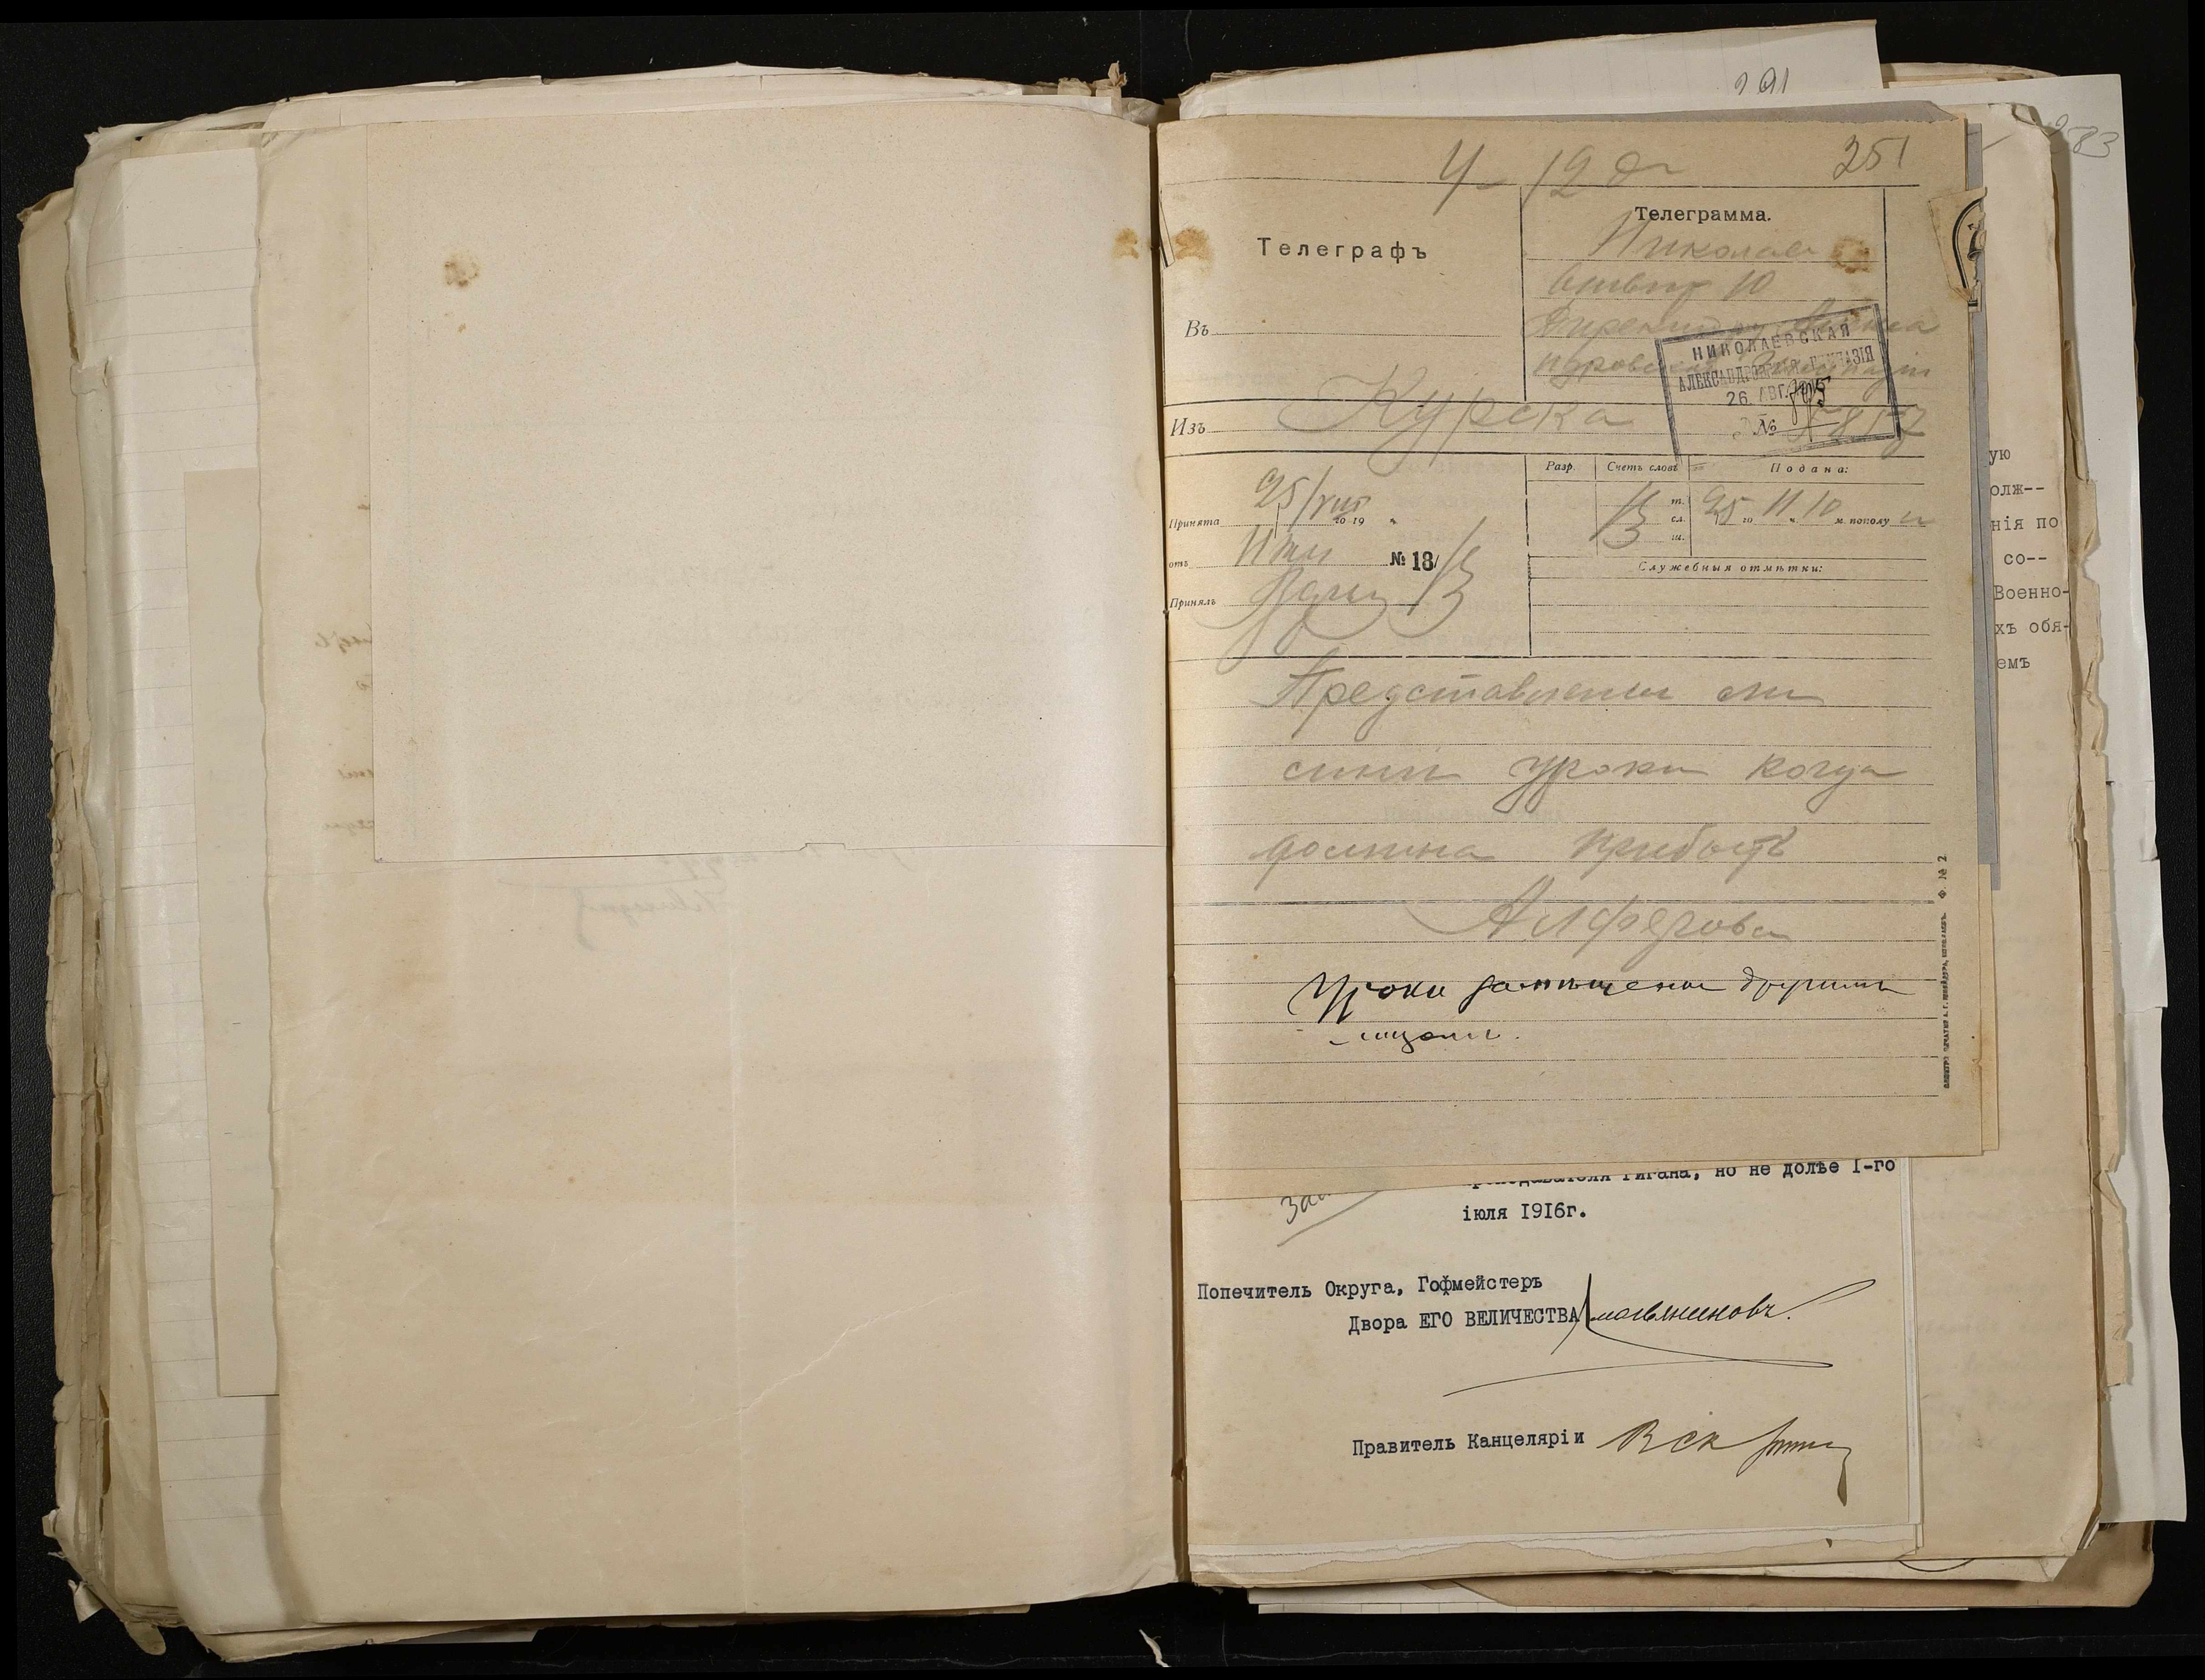 291
283
4-12
251
Телеграфъ
Телеграмма.
Николаев
10
Въ
Директору
НИКОЛАЕВСКАЯ
АЛЕКСАНДРОВСКАЯ ГИМНАЗІЯ
26 АВГ. 1915
№
Изъ Курска 857
Разр. Счетъ словъ Подана:
Принята 25/VIII го 19
13 т. сл. ш. 25 го 11 ч. 10 м. пополу
отъ № 18/13
Служебныя отмѣтки:
Принялъ
Представлены ли
мнѣ уроки когда
должна прибыть
Алферова
Уроки замѣщены другими
лицами.
Ф. № 2
но не долѣе I-го
іюля I9I6г.
Попечитель Округа, Гофмейстеръ
Двора ЕГО ВЕЛИЧЕСТВА Смольяниновъ.
Правитель Канцеляріи
ую
олж--
нія по
со--
Военно-
хъ обя-
емъ